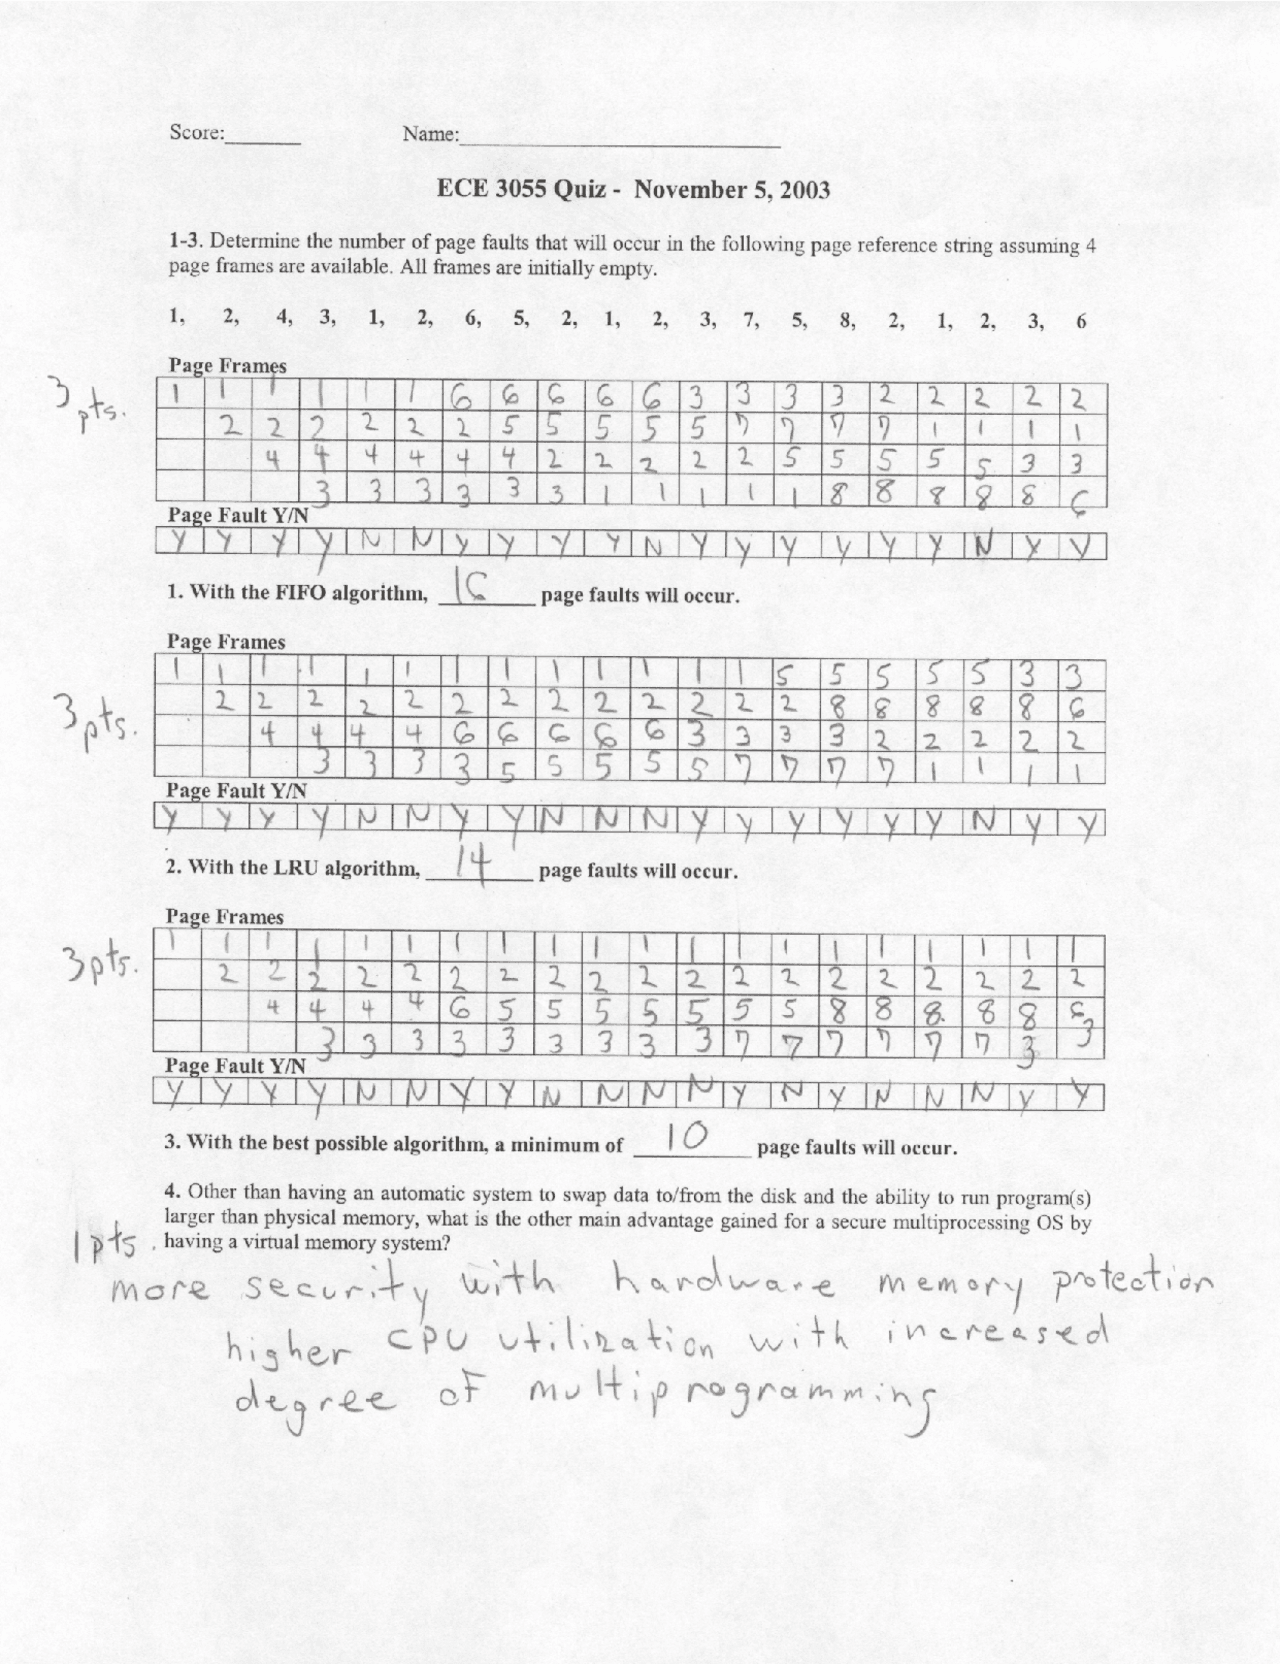 Score:______ Name:______________
ECE 3055 Quiz - November 5, 2003
1-3. Determine the number of page faults that will occur in the following page reference string assuming 4
page frames are available. All frames are initially empty.
1, 2, 4, 3, 1, 2, 6, 5, 2, 1, 2, 3, 7, 5, 8, 2, 1, 2, 3, 6
Page Frames
3 pts.
1 1 1 1 1 1 6 6 6 6 6 3 3 3 3 2 2 2 2 2
2 2 2 2 2 2 5 5 5 5 5 7 7 7 7 1 1 1 1
4 4 4 4 4 4 2 2 2 2 2 5 5 5 5 5 3 3
3 3 3 3 3 3 1 1 1 1 1 8 8 8 8 8 6
Page Fault Y/N
Y Y Y Y N N Y Y Y Y N Y Y Y Y Y Y N Y Y
1. With the FIFO algorithm, 16 page faults will occur.
Page Frames
3 pts.
1 1 1 1 1 1 1 1 1 1 1 1 1 5 5 5 5 5 3 3
2 2 2 2 2 2 2 2 2 2 2 2 2 8 8 8 8 8 6
4 4 4 4 6 6 6 6 6 3 3 3 3 2 2 2 2 2
3 3 3 3 5 5 5 5 5 7 7 7 7 1 1 1 1
Page Fault Y/N
Y Y Y Y N N Y Y N N N Y Y Y Y Y Y N Y Y
2. With the LRU algorithm, 14 page faults will occur.
Page Frames
3 pts.
1 1 1 1 1 1 1 1 1 1 1 1 1 1 1 1 1 1 1 1
2 2 2 2 2 2 2 2 2 2 2 2 2 2 2 2 2 2 2
4 4 4 4 6 5 5 5 5 5 5 5 8 8 8 8 8 6
3 3 3 3 3 3 3 3 3 7 7 7 7 7 7 3 3
Page Fault Y/N
Y Y Y Y N N Y Y N N N N Y N Y N N N Y Y
3. With the best possible algorithm, a minimum of 10 page faults will occur.
4. Other than having an automatic system to swap data to/from the disk and the ability to run program(s)
larger than physical memory, what is the other main advantage gained for a secure multiprocessing OS by
1 pts. having a virtual memory system?
more security with hardware memory protection
higher CPU utilization with increased
degree of multiprogramming